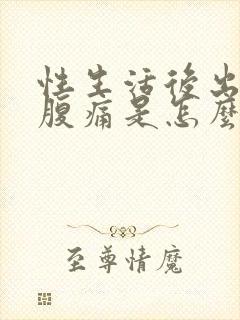 性生活後出
腹痛是怎麼
至尊情魔